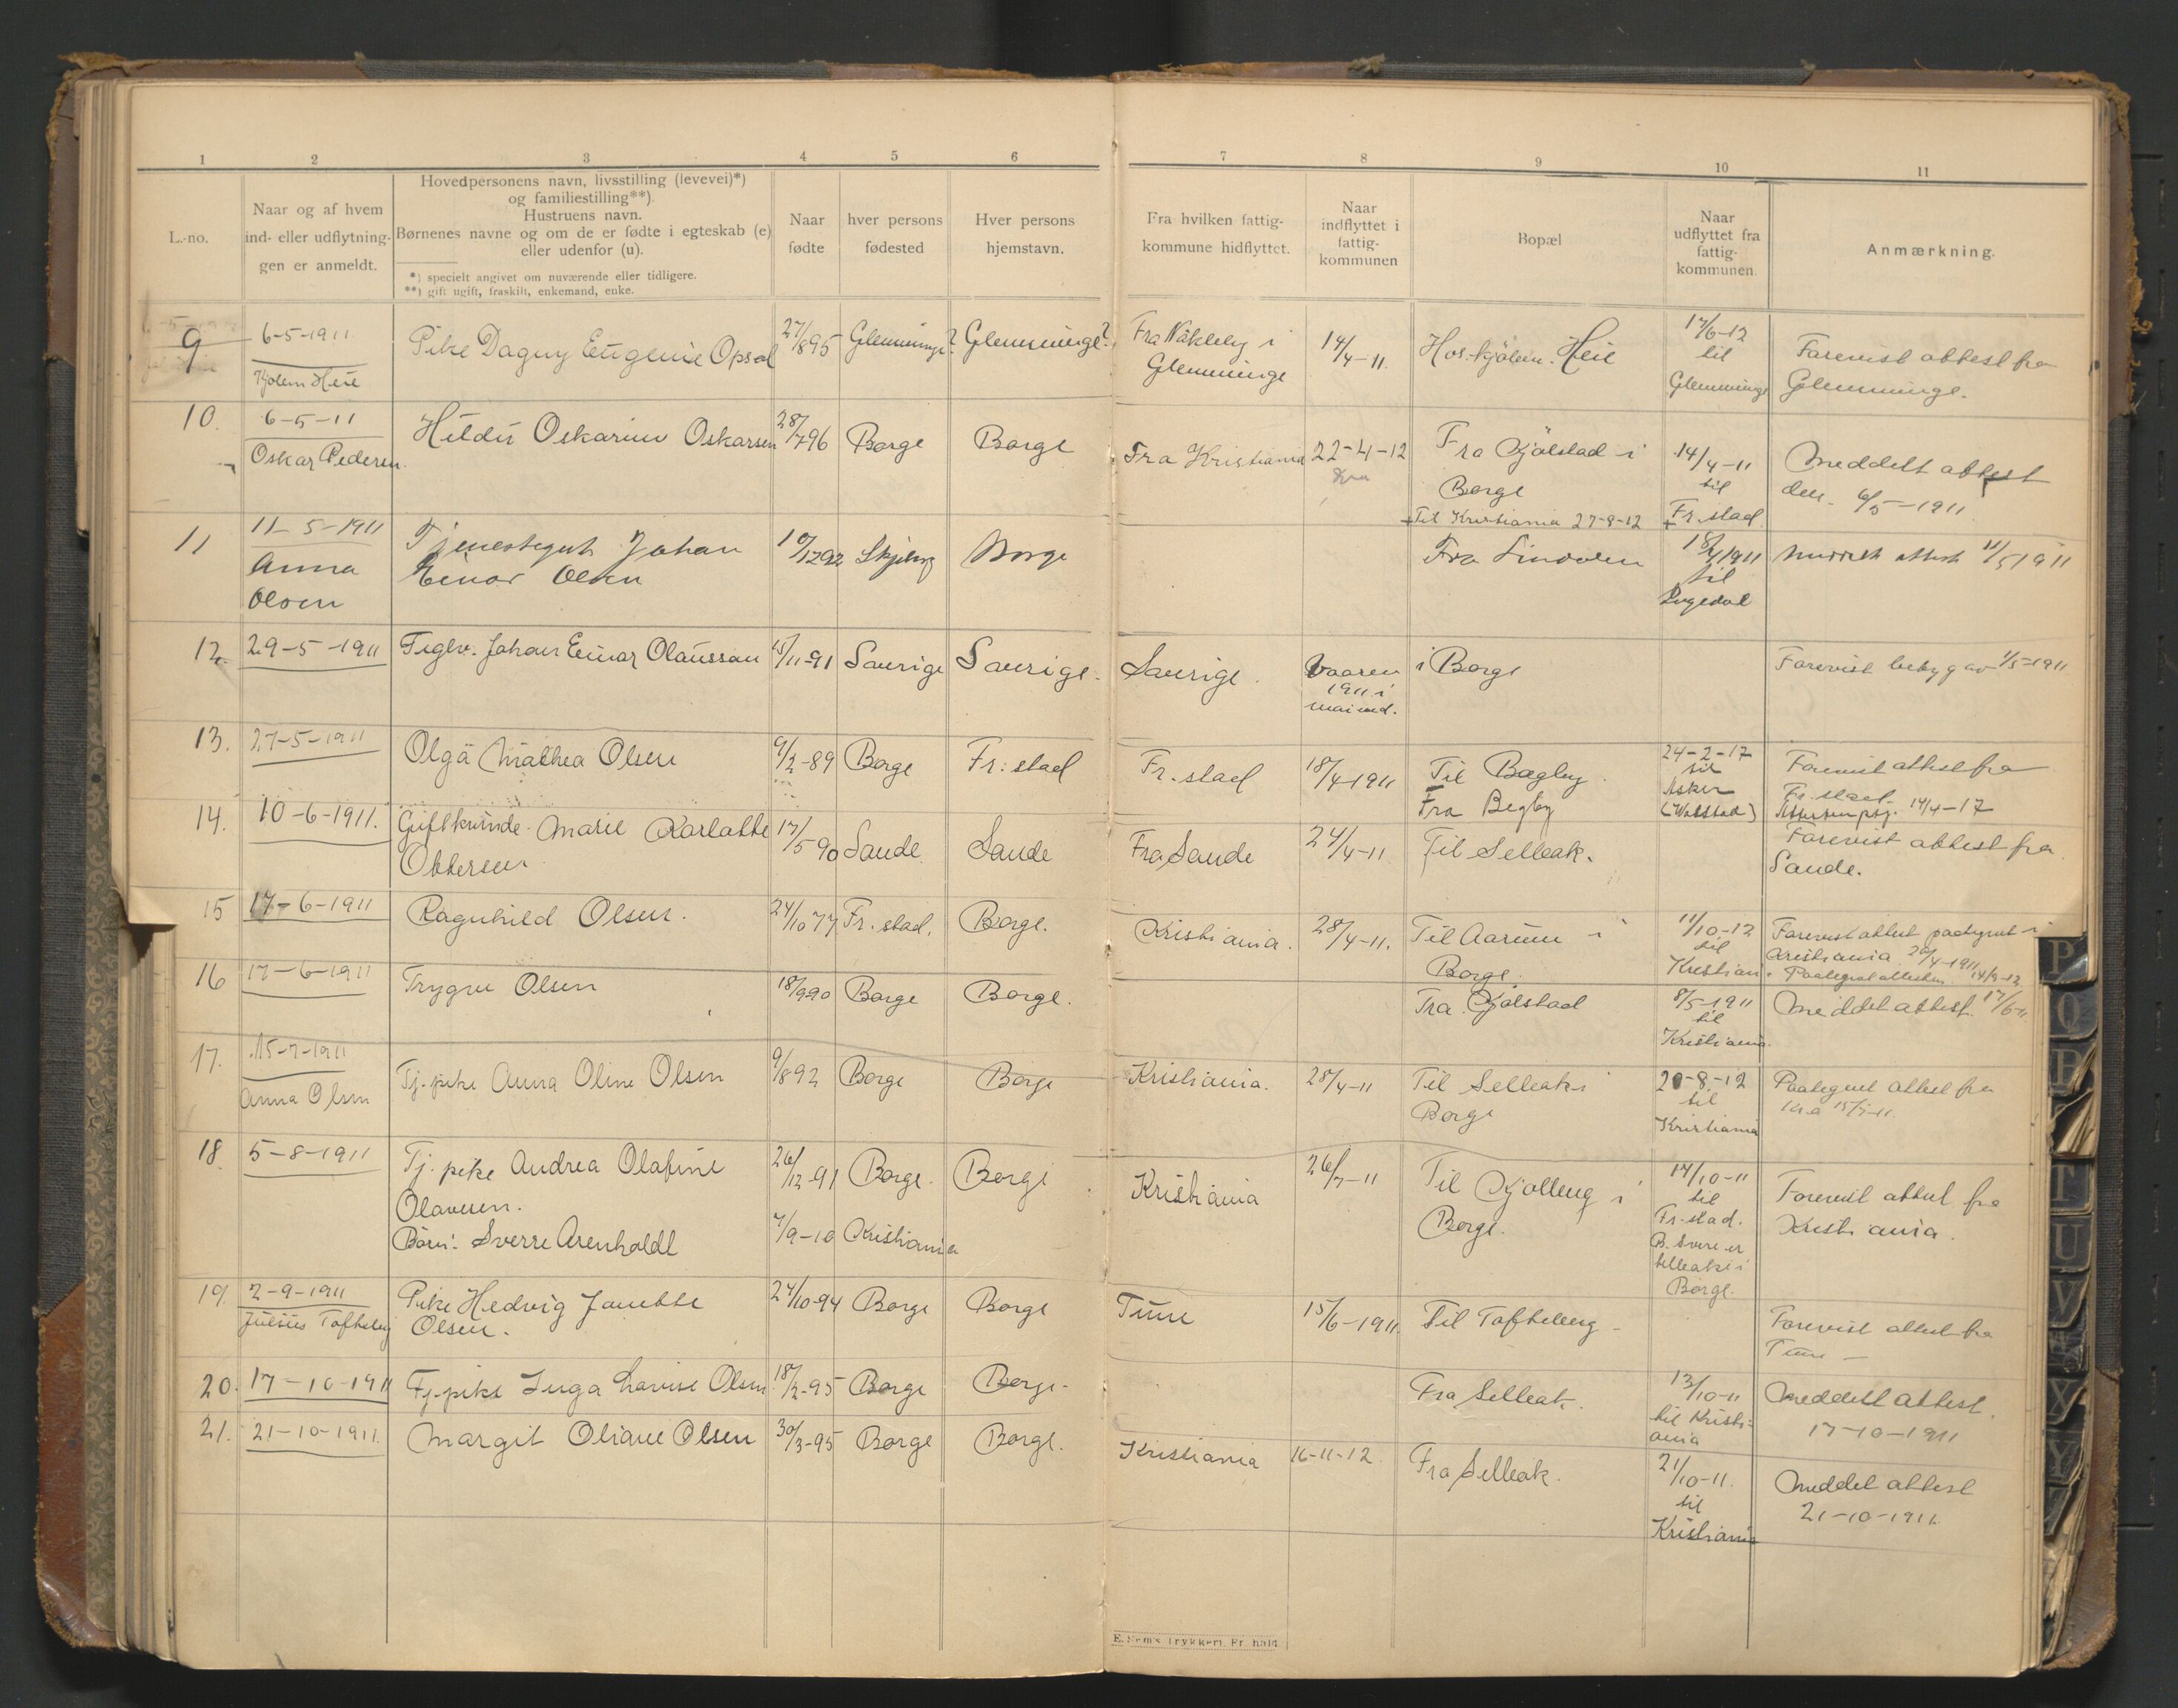 1 2 3 4 5 6 7 8 9 10 11
L.-no.
Naar og af hvem
ind- eller udflytnin-
gen er anmeldt.
Hovedpersonens navn, livsstilling (levevei)*)
og familiestilling**).
Hustruens navn.
Børnenes navne og om de er fødte i egteskab (e)
eller udenfor (u).
*) specielt angivet om nuværende eller tidligere.
**) gift ugift, fraskilt, enkemand, enke.
Naar
fødte
hver persons
fødested
Hver persons
hjemstavn.
Fra hvilken fattig-
kommune hidflyttet.
Naar
indflyttet i
fattig-
kommunen
Bopæl
Naar
udflyttet fra
fattig-
kommunen
Anmærkning.
9
6-5-1911
Kjølem Heie
Pike Dagny Eugenie Opsal
27/8 95
Glemminge?
Glemminge?
Fra Nåkleby i
Glemminge
14/4-11.
Hos Kjølem Heie
17/6-12
til
Glemminge
Forevist attest fra
Glemminge.
10.
6-5-11
Oskar Pedersen.
Hildur Oskarine Oskarsen
28/7 96
Borge
Borge
Fra Kristiania
22-4-12
Kra
Fra Gjølstad i
Borge
+ Til Kristiania 27-9-12
14/4-11
til
+ Fr.stad
Meddelt attest
den 6/5-1911
11
11-5-1911
Anna
Olsen
Tjenestegut Johan
Einar Olsen
10/12 92
Skjeberg
Borge
Fra Lindalen
18/4 1911
til
Ingedal
Meddelt attest 11/5 1911
12.
29-5-1911
Teglv. Johan Einar Olaussan
15/11-91
Saurige
Saurige.
Saurige.
Vaaren
1911 i
mai md.
i Borge
Forevist betyg av 1/5-1911
13.
27-5-1911
Olga Mathea Olsen
9/2-89
Borge
Fr:stad
Fr.stad
18/4-1911
Til Begby.
Fra Begby
24-2-17
til
Asker
(Valstad)
Forevist attest fra
Fr.stad.
Attesten påtg. 14/4-17
14.
10-6-1911.
Gift kvinde Marie Karlotte
Ottersen
17/5 90
Sande
Sande
Fra Sande
24/4-11
Til Selleak.
Forevist attest fra
Sande.
15
17-6-1911
Ragnhild Olsen.
24/10 77
Fr.stad.
Borge.
Kristiania.
28/4-11.
Til Aarum i
Borge.
11/10-12
til
Kristiania
Forevist attest paategnet i
Kristiania 28/4-1911
Paategnet attesten 14/9-12
16
17-6-1911
Trygve Olsen
18/9 90
Borge
Borge.
Fra Gjølstad
8/5-1911
til
Kristiania.
Meddelt attest. 17/6-11
17.
15-7-1911
Anna Olsen
Tj.pike Anna Oline Olsen
9/8 92
Borge
Borge
Kristiania.
28/4-11
Til Selleak i
Borge
20-8-12
til
Kristiania
Paategnet attest fra
Kra 15/7-11.
18.
5-8-1911
Tj.pike Andrea Olafine
Olavesen.
Børn: Sverre Arenholdt
26/12-91
7/9-10
Borge.
Kristiania
Borge
Kristiania
26/7-11
Til Gjølleng i
Borge.
14/10-11
til
Fr.stad.
B. Sverre er
Selleak i
Borge.
Forevist attest fra
Kristiania.
19.
2-9-1911
Julius Tofteberg
Pike Hedvig Janette
Olsen.
24/10-94
Borge
Borge
Tune
15/6-1911.
Til Tofteberg
Forevist attest fra
Tune
20.
17-10-1911
Tj.pike Inga Lovise Olsen
18/2-95
Borge
Borge.
Fra Selleak.
13/10-11
til Kristi-
ania
Meddelt attest.
17-10-1911
21.
21-10-1911.
Margit Oliane Olsen
30/3-95
Borge
Borge.
Kristiania
16-11-12.
Fra Selleak.
21/10-11.
til
Kristiania
Meddelt attest
21-10-1911.
E. Sem's Trykkeri. Fr. hald.
P
Q
R
T
U
V
Y